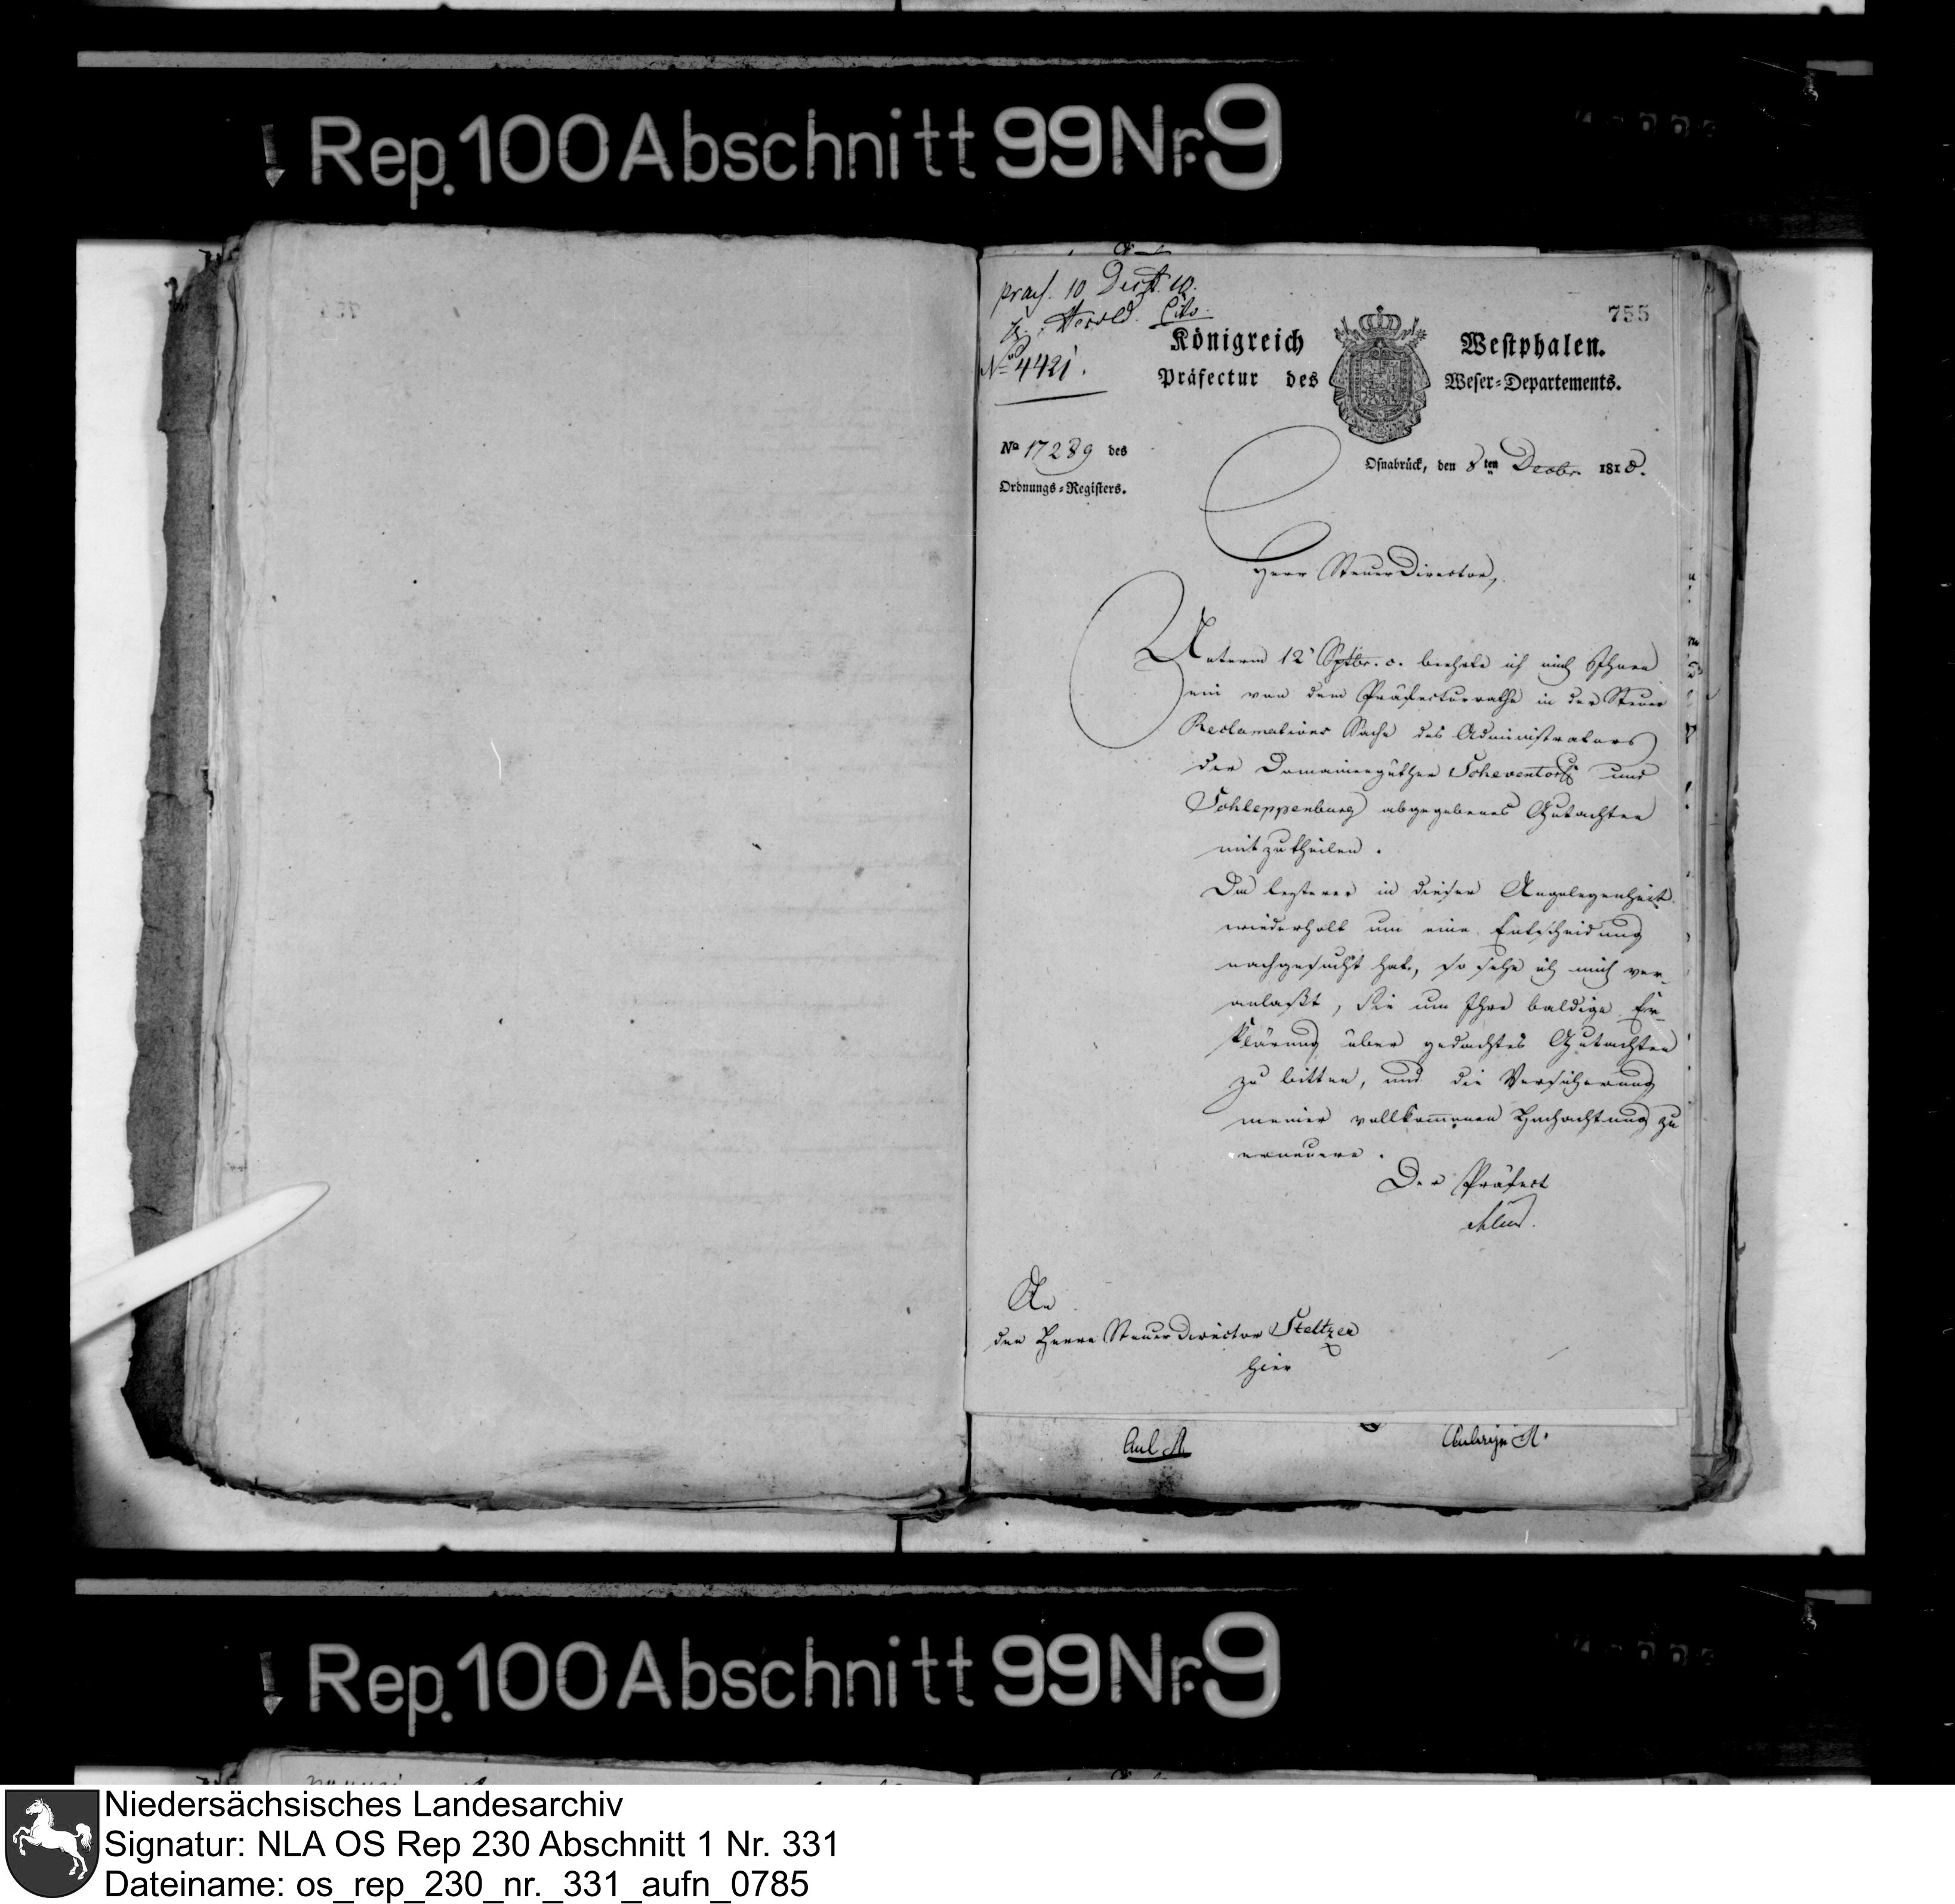 Rep. 100 Abschnitt 99 Nr. 9
praes. 10 10.
Herold. Cito.
No 4421.
755
Königreich Westphalen.
Präfectur des Weser-Departements.
No 17289 des
Ordnungs-Registers.
Osnabrück, den 8ten Decbr. 1810.
Herr SteuerDirector,
Unterm 12 Sptbr. c. beehrte ich mich Ihnen
ein von dem Präfecturrathe in der Steuer
Reclamations Sache des Administrators
der Domainengüther Scheventorff und
Schleppenburg abgegebenes Gutachten
mitzutheilen.
Da letzterer in dieser Angelegenheit
wiederholt um eine Entscheidung
nachgesucht hat, so sehe ich mich ver-
anlaßt, Sie um Ihre baldige Er-
klärung über gedachtes Gutachten
zu bitten, und die Versicherung
meiner vollkommenen Hochachtung zu
erneuern.
Der Präfect
An
den Herrn SteuerDirector Steltzer
hier
Rep. 100 Abschnitt 99 Nr. 9
Niedersächsisches Landesarchiv
Signatur: NLA OS Rep 230 Abschnitt 1 Nr. 331
Dateiname: os_rep_230_nr._331_aufn_0785